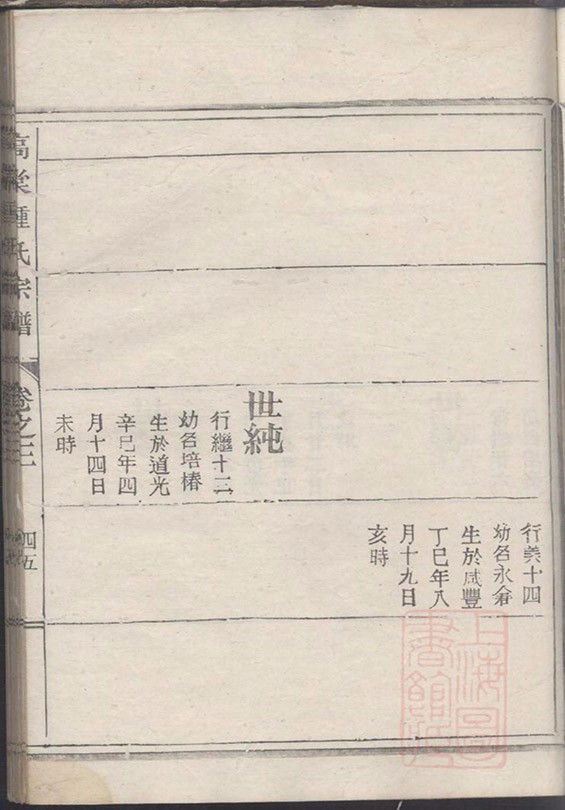 行美十四
幼名永畲
生於咸豐
丁巳年八
月十九日
亥時
世純
行繼十三
幼名培椿
生於道光
辛巳年四
月十四日
未時
高𡊮鍾氏宗譜
卷之三
四五
上海圖
書館藏